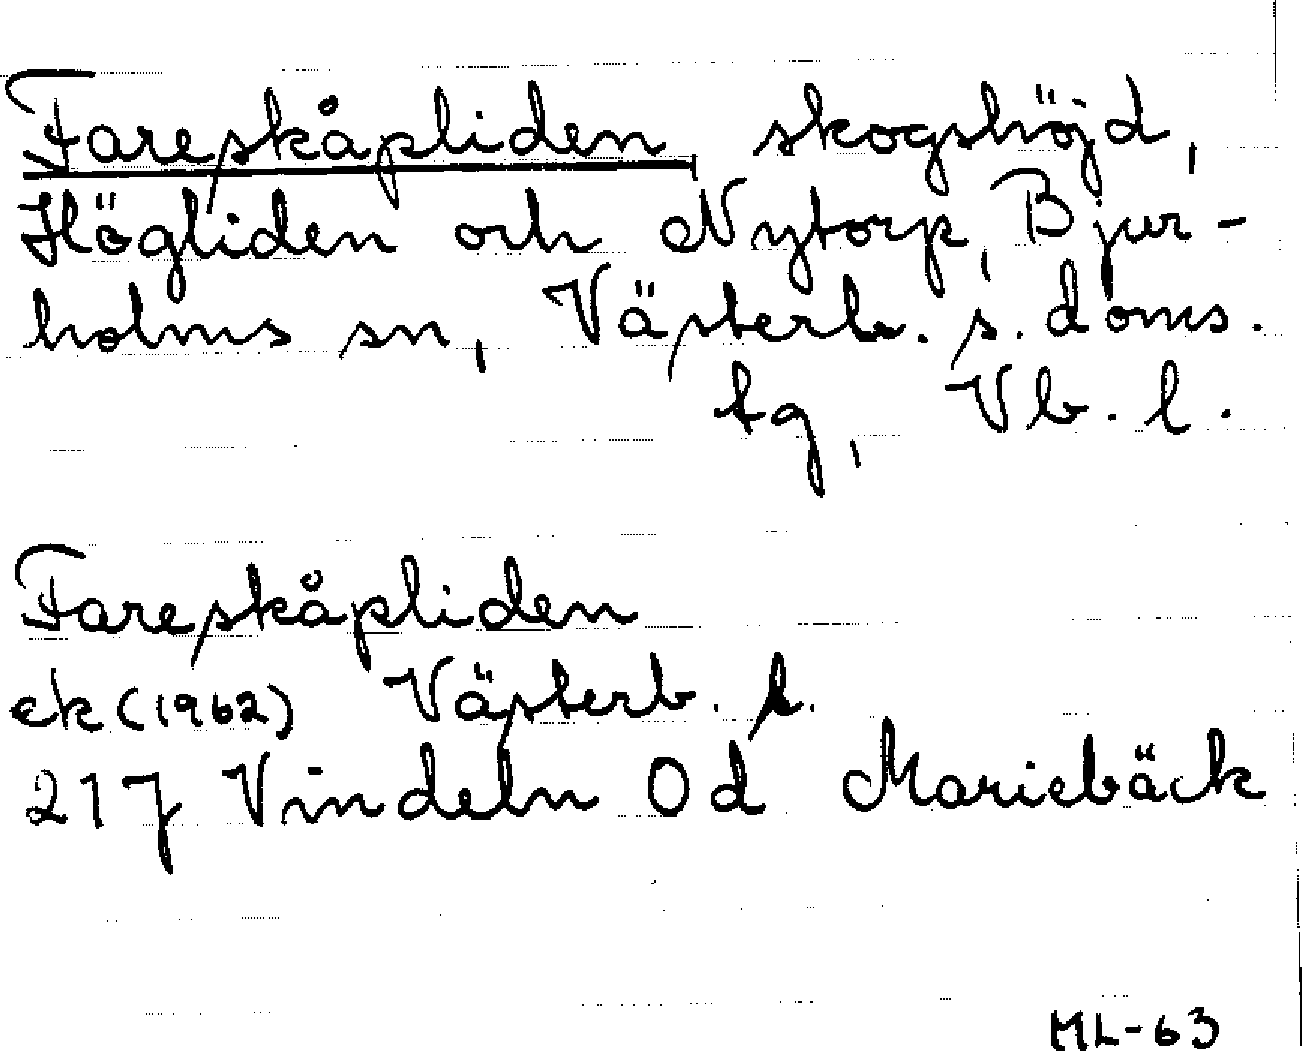 Fareskåpliden, skogshöjd,
Högliden och Nytorp, Bjur-
holms sn, Västerb. s. doms.
tg, Vb. l.
Fareskåpliden
ek (1962) Västerb. l.
21J Vindeln 0d Mariebäck
ML-63